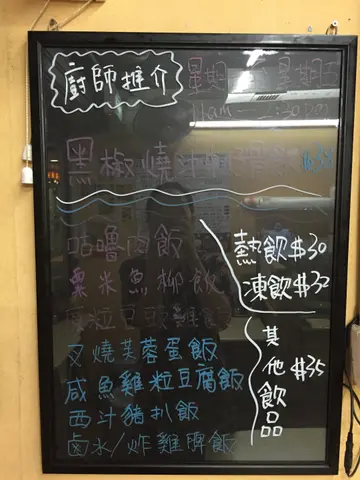 廚師推介
星期 星期五
11am
黑椒燒汁 飯 $38
咕嚕肉飯
粟米魚柳飯
粒豆
叉燒芙蓉蛋飯
咸魚雞粒豆腐飯
西汁豬扒飯
鹵水/炸雞脾飯
熱飲$30
凍飲$32
其他飲品 $35